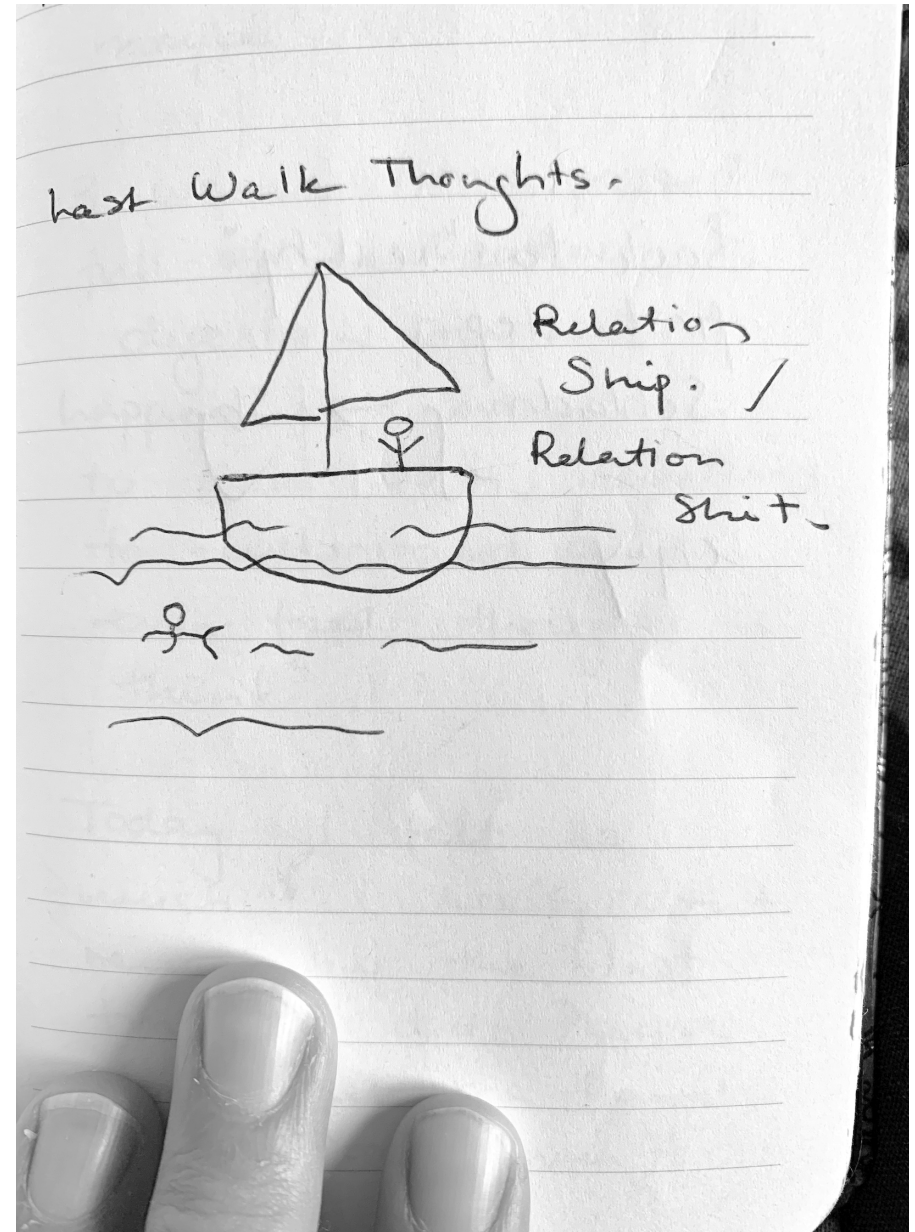 Last Walk Thoughts.
Relation
Ship. /
Relation
Shit.